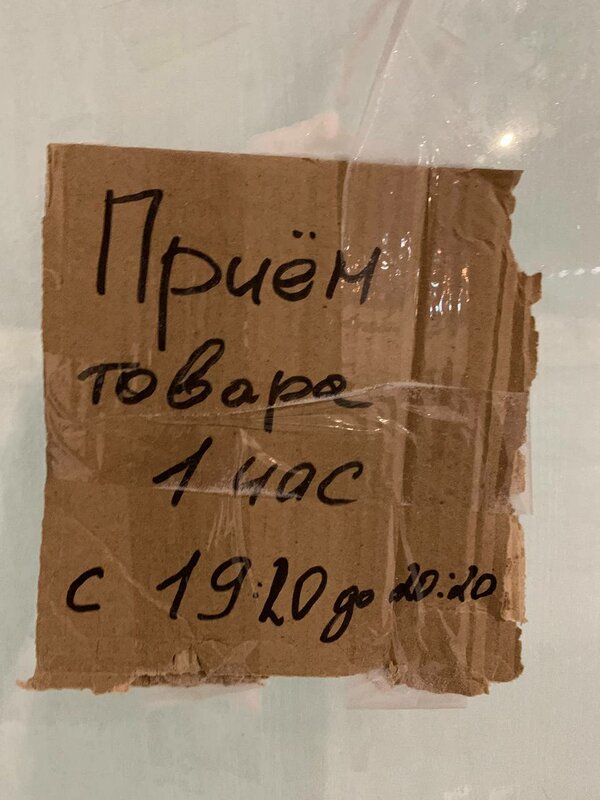 Приём
товара
1 час
с 19:20 до 20:20